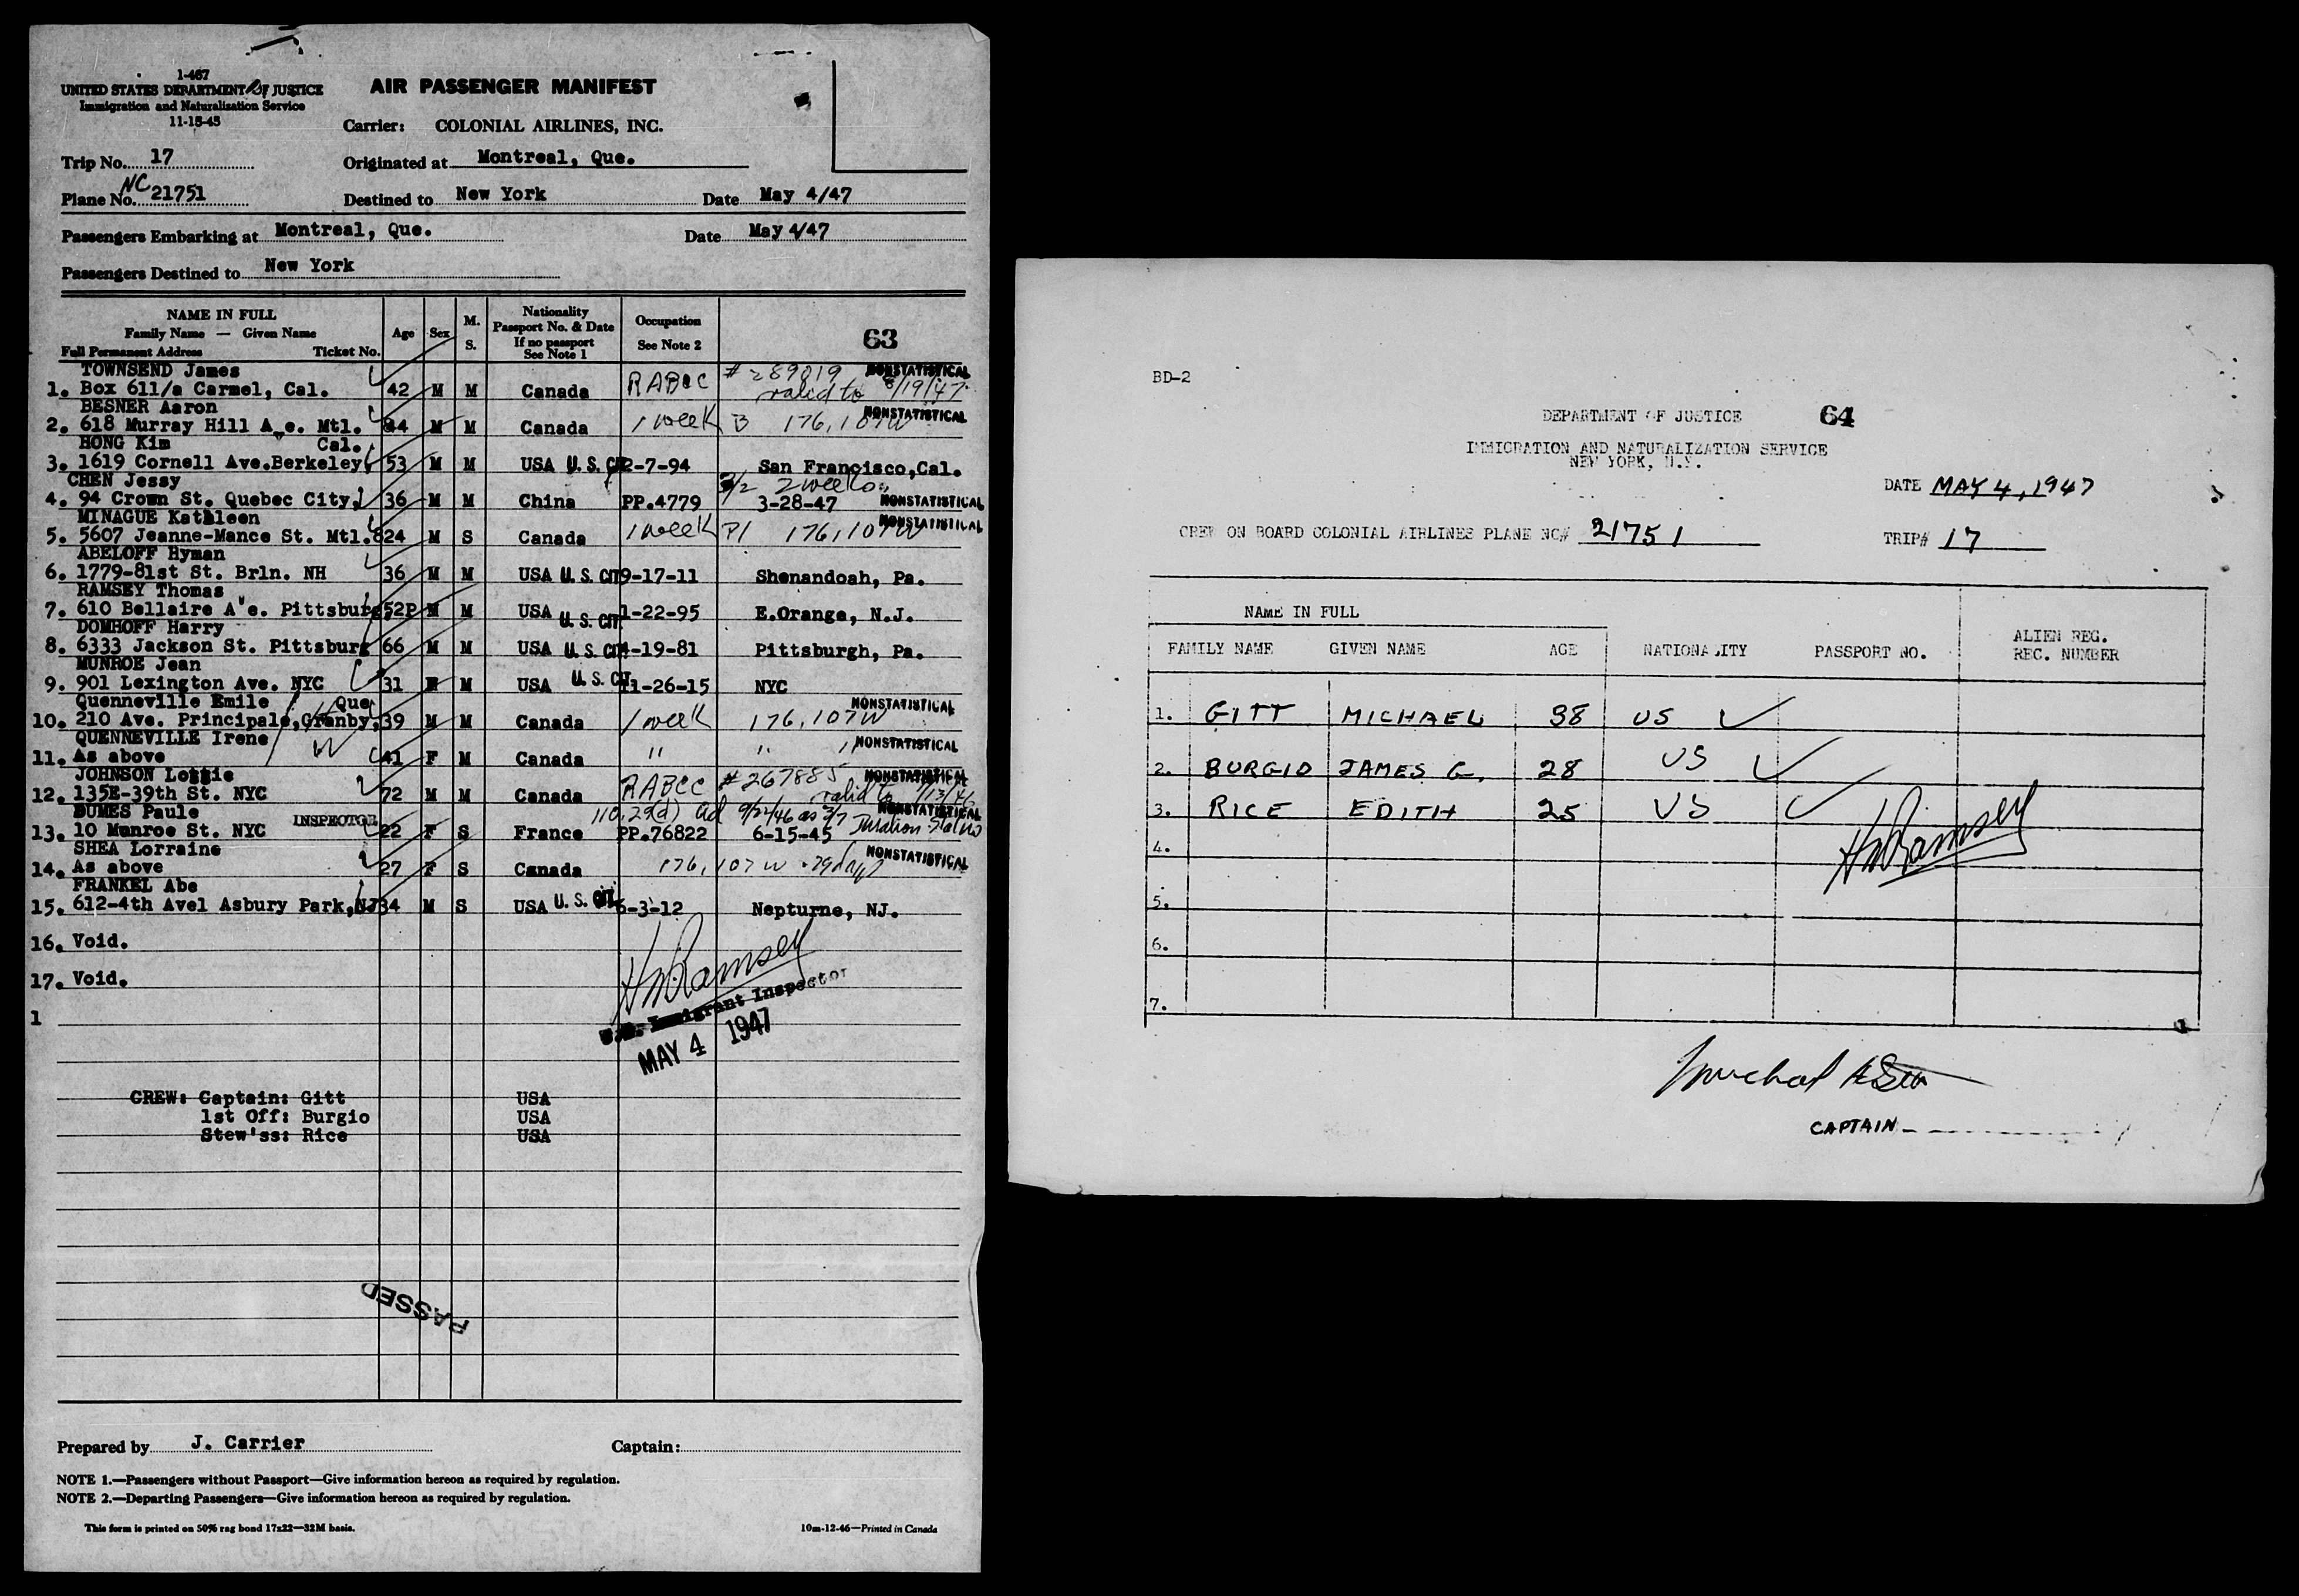 1-467
UNITED STATES DEPARTMENT OF JUSTICE
Immigration and Naturalization Service
11-15-45
AIR PASSENGER MANIFEST
Carrier: COLONIAL AIRLINES, INC.
Trip No. 17
Originated at Montreal, Que.
Plane No. NC 21751
Destined to New York Date May 4/47
Passengers Embarking at Montreal, Que. Date May 4/47
Passengers Destined to New York
NAME IN FULL
Family Name — Given Name
Full Permanent Address Ticket No.
Age
Sex
M.
S.
Nationality
Passport No. & Date
If no passport
See Note 1
Occupation
See Note 2
63
TOWNSEND James
1. Box 611/a Carmel, Cal. 42 M M Canada RABCC #289019 valid to 8/19/47 NONSTATISTICAL
BESNER Aaron
2. 618 Murray Hill Ave. Mtl. 44 M M Canada 1 week B 176,107W NONSTATISTICAL
HONG Kim Cal.
3. 1619 Cornell Ave.Berkeley, 53 M M USA U. S. CIT 2-7-94 San Francisco,Cal.
CHEN Jessy
4. 94 Crown St. Quebec City, 36 M M China PP.4779 3/2 2 weeks 3-28-47 NONSTATISTICAL
MINAGUE Kathleen
5. 5607 Jeanne-Mance St. Mtl. 24 M S Canada 1 week P1 176,107W NONSTATISTICAL
ABELOFF Hyman
6. 1779-81st St. Brln. NH 36 M M USA U. S. CIT 9-17-11 Shenandoah, Pa.
RAMSEY Thomas
7. 610 Bellaire A'e. Pittsburg 52P M M USA U. S. CIT 1-22-95 E.Orange, N.J.
DOMHOFF Harry
8. 6333 Jackson St. Pittsburg 66 M M USA U. S. CIT -19-81 Pittsburgh, Pa.
MUNROE Jean
9. 901 Lexington Ave. NYC 31 F M USA U. S. CIT 11-26-15 NYC
Quenneville Emile Que
10. 210 Ave. Principale,Granby, 39 M M Canada 1 week 176,107W NONSTATISTICAL
QUENNEVILLE Irene
11. As above 41 F M Canada " " " NONSTATISTICAL
JOHNSON Lottie
12. 135E-39th St. NYC 72 M M Canada RABCC #267885 valid to NONSTATISTICAL
DUMES Paule 110.29(d) ad 9/21/46 as 3/7 Duration Status NONSTATISTICAL
13. 10 Munroe St. NYC INSPECTOR 22 F S France PP.76822 6-15-45
SHEA Lorraine
14. As above 27 F S Canada 176,107W 29 days NONSTATISTICAL
FRANKEL Abe
15. 612-4th Avel Asbury Park,NJ 34 M S USA U. S. CIT. 6-3-12 Nepturne, NJ.
16. Void.
17. Void.
1
HM Ramsey
U.S. Immigrant Inspector
MAY 4 1947
CREW: Captain: Gitt USA
1st Off: Burgio USA
Stew'ss: Rice USA
PASSED
Prepared by J. Carrier
Captain:
NOTE 1.—Passengers without Passport—Give information hereon as required by regulation.
NOTE 2.—Departing Passengers—Give information hereon as required by regulation.
This form is printed on 50% rag bond 17x22—32M basis.
10m-12-46—Printed in Canada
BD-2
DEPARTMENT OF JUSTICE 64
IMMIGRATION AND NATURALIZATION SERVICE
NEW YORK, N.Y.
DATE MAY 4, 1947
CREW ON BOARD COLONIAL AIRLINES PLANE NO# 21751 TRIP# 17
NAME IN FULL
FAMILY NAME GIVEN NAME AGE NATIONALITY PASSPORT NO. ALIEN REG.
REC. NUMBER
1. GITT MICHAEL 38 US
2. BURGIO JAMES G. 28 US
3. RICE EDITH 25 US
HM Ramsey
4.
5.
6.
7.
CAPTAIN